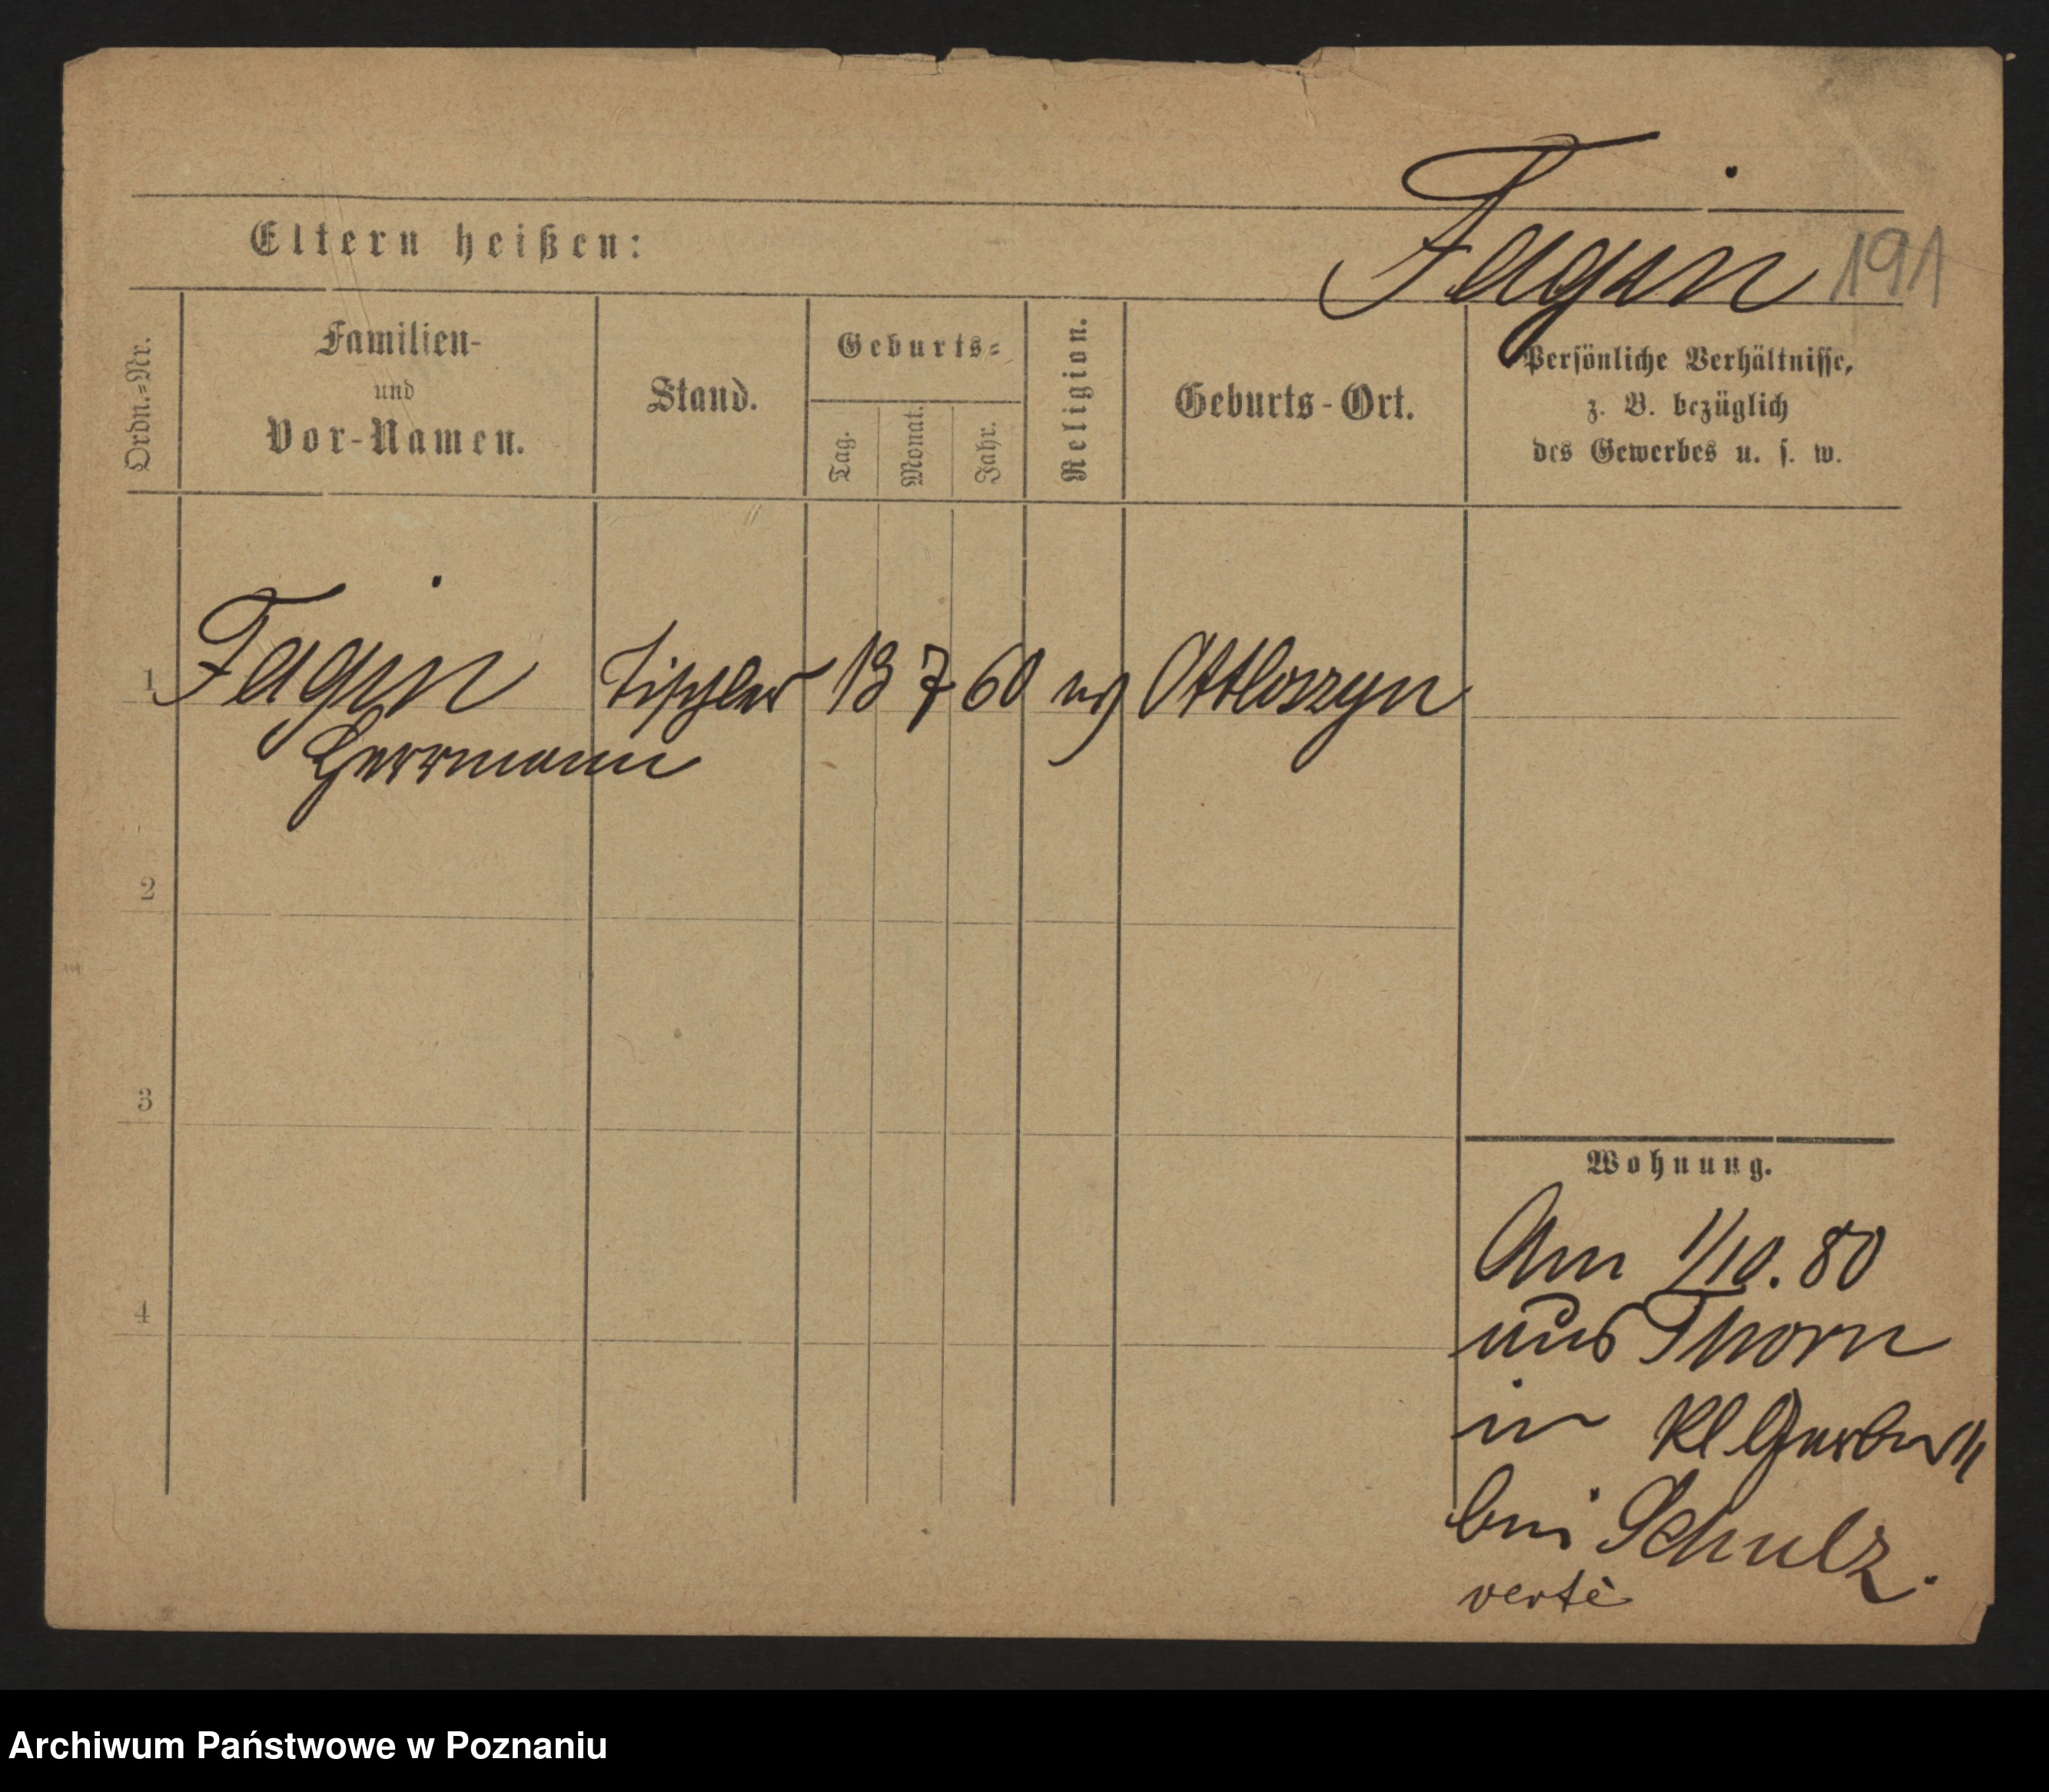 Fagin 191
Eltern heißen:
Ordn.-Nr.
Familien-
und
Vor-Namen.
Stand.
Geburts-
Tag.
Monat.
Jahr.
Religion.
Geburts-Ort.
Persönliche Verhältnisse,
z. B. bezüglich
des Gewerbes u. s. w.
1 Fagin Tischler 13 7 60 Ottloszyn
Herrmann
2
3
4
Wohnung.
Am 1/10. 80
aus Thorn
in Kl Gerber
bei Schulz.
verte
Archiwum Państwowe w Poznaniu